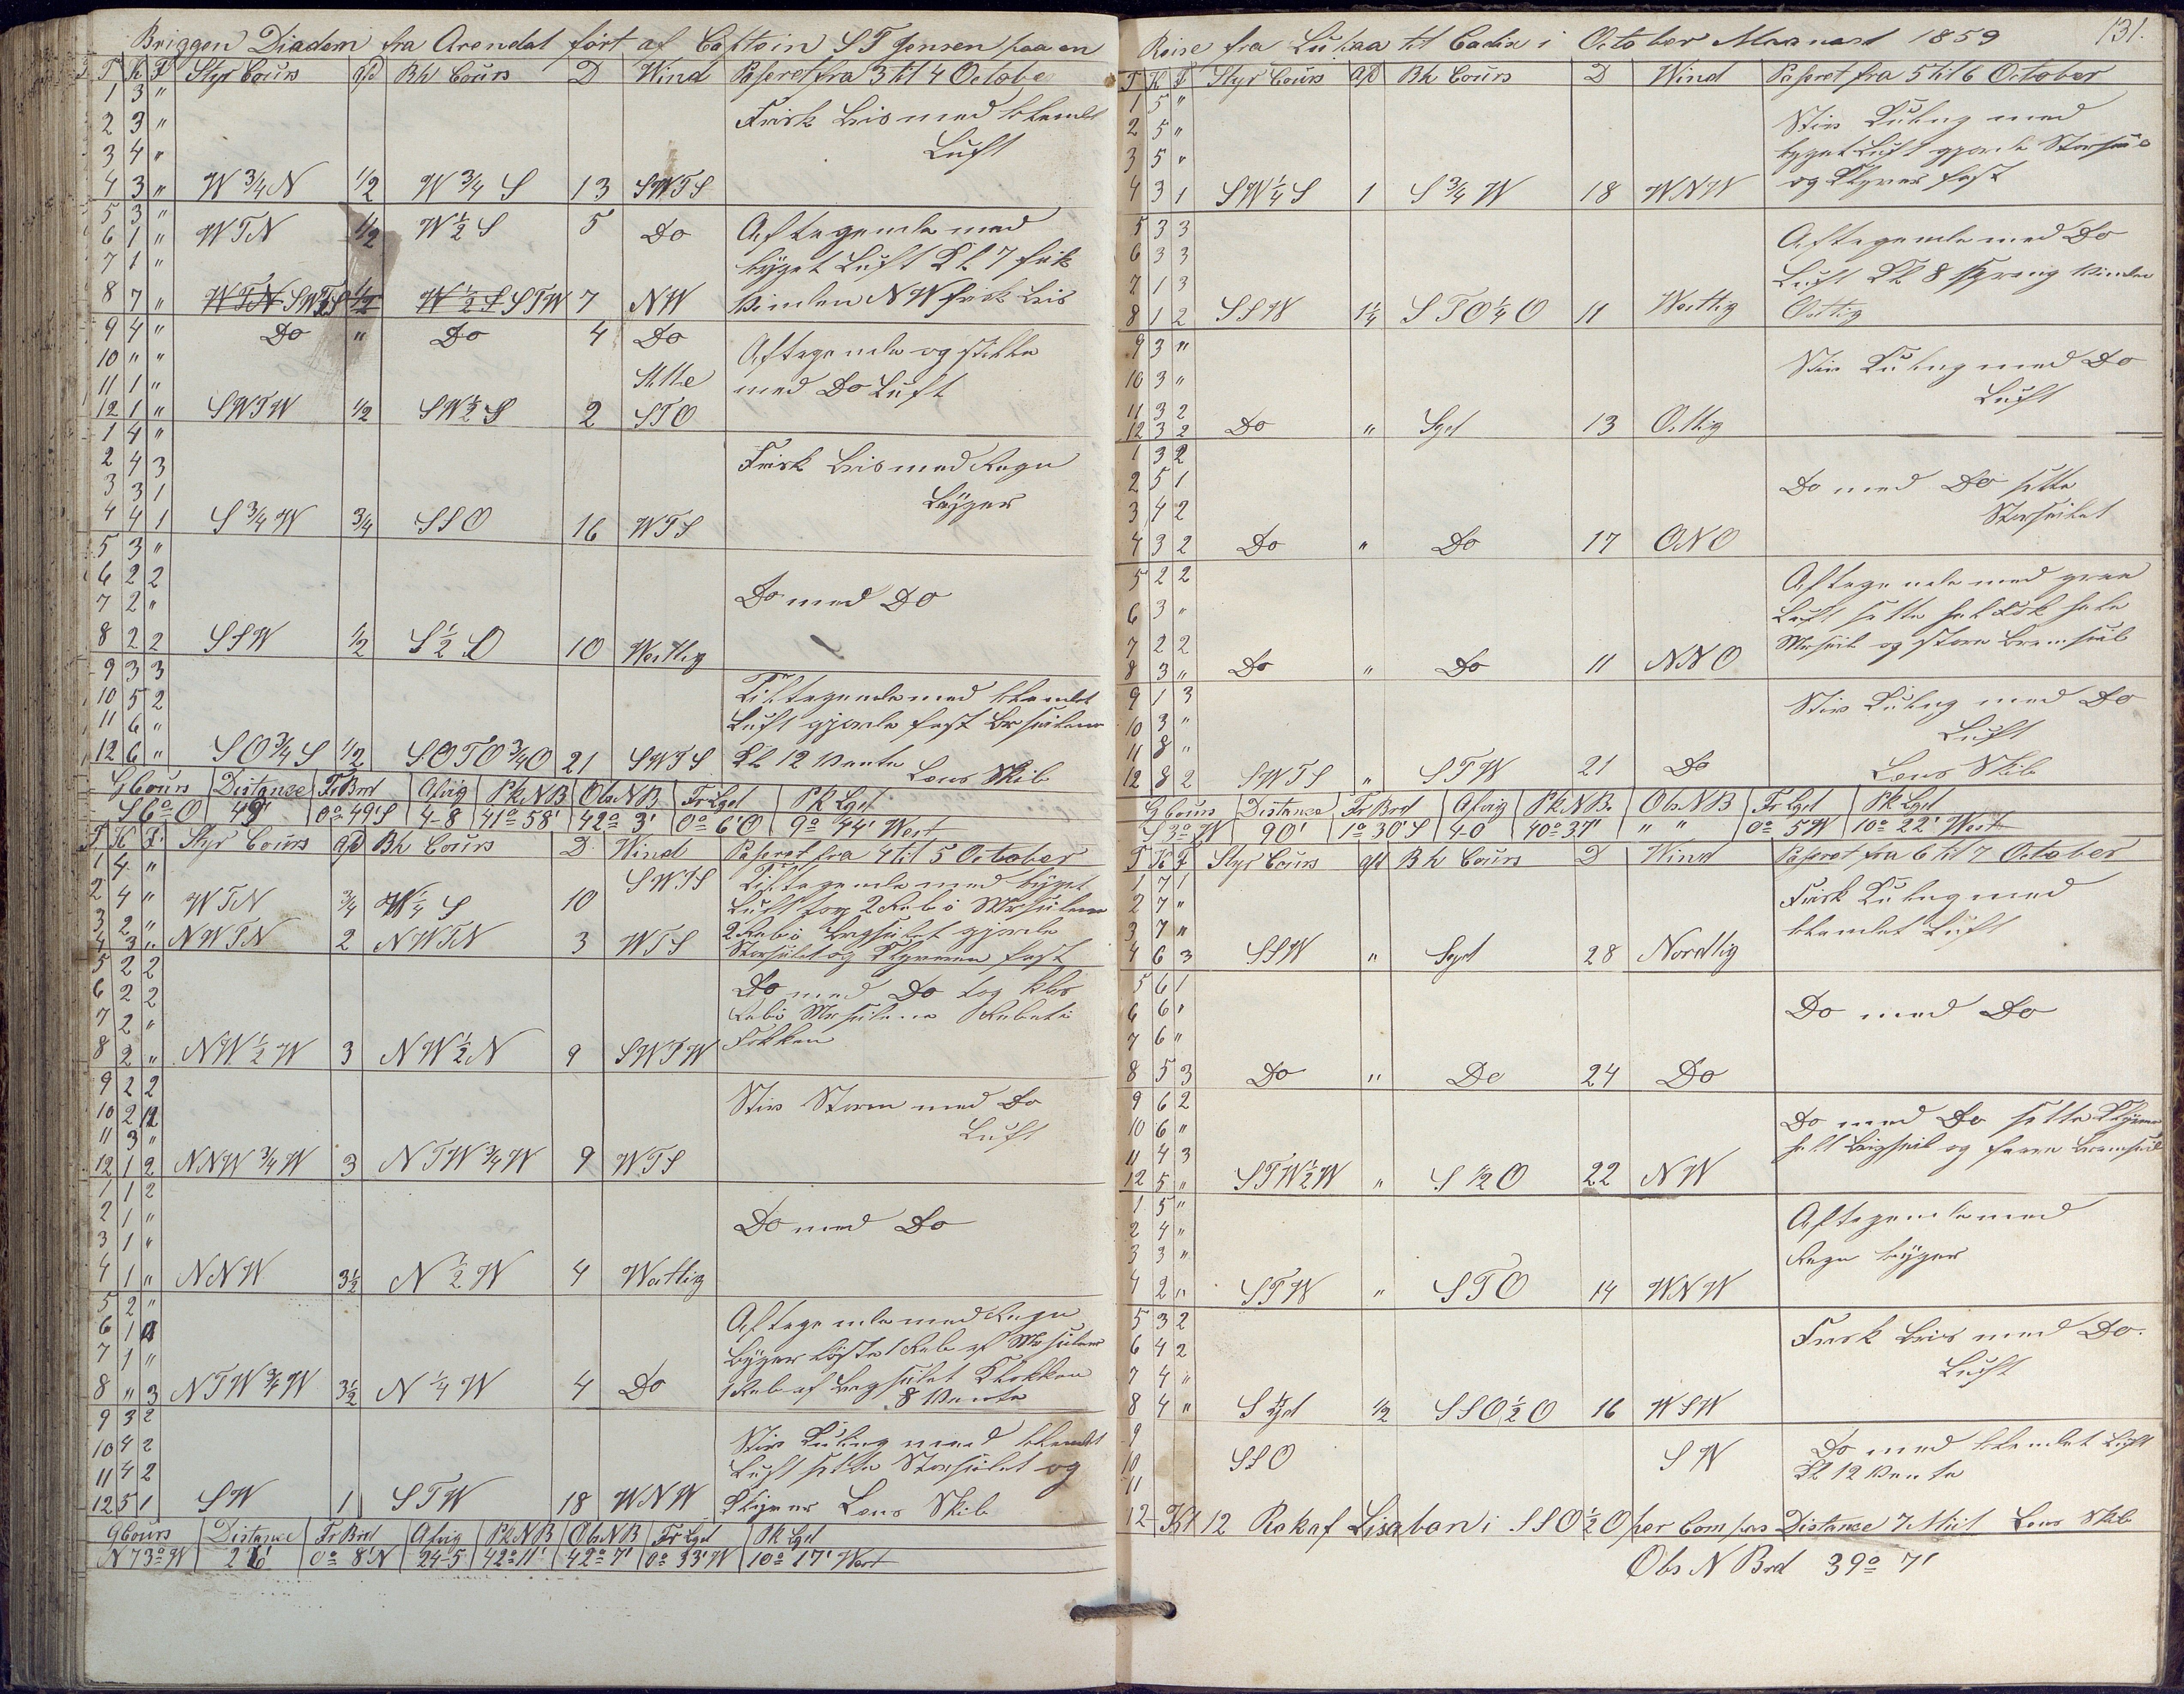 Briggen Diadem fra Arendal ført af Captein S T Jensen paa en
T K F Styr Cours afd Bh Cours D Wind Passeret fra 3 til 4 Octobe
1 3 " Frisk Bris med skendt
2 3 " Luft
3 4 "
4 3 " W 3/4 N 1/2 W 3/4 S 13 SWTS
5 3 "
6 1 " WTN 1/2 W 1/2 S 5 Do Aftagende med
7 1 " bÿget Luft Kl 7 fik
8 7 " SWTS STW 7 NW Vinden NW frisk Bris
9 4 " Do " Do 4 Do Aftagende og stille
10 " " Stille med Do Luft
11 1 "
12 1 " SWTW 1/2 SW 1/2 S 2 STO
1 4 "
2 4 3 Frisk Bris med Regn
3 3 1 bÿger
4 4 1 S 3/4 W 3/4 SSO 16 WTS
5 3 "
6 2 2
7 2 " Do med DO
8 2 2 SSW 1/2 S 1/2 O 10 Westlig
9 3 3
10 5 2 Tiltagende med
11 6 " Luft gjorde fast
12 6 " SO 3/4 S 1/2 SOTO 3/4 O 21 SWTS Kl 12 Vente Lens Skib
G Cours Distance Fr Brd Afvig Pk N B Obs N B Fr Lgd Pk Lgd
S 6° O 49' 0° 49' S 4-8 41° 58' 42° 3' 0° 6' O 9° 44' West
T K F Styr Cours afd Bh Cours D Wind Passeret fra 4 til 5 October
1 4 " SWTS Tiltagende med bÿget
2 4 " WTN 3/4 W 1/4 S 10 Luft tog 2 Reb i Mersseilene
3 2 " 2 Reb i Brigseilet gjorde
4 3 " NWTN 2 NWTN 3 WTS Storseilet og Klyveren fast
5 2 2 Do med Do tog klos
6 2 2 Reb i Mersseilene Rebet i
7 2 " Fokken
8 2 " NW 1/2 W 3 NW 1/2 N 9 SWTW
9 2 2
10 2 Stiv Storm med Do
11 3 " Luft
12 1 2 NNW 3/4 W 3 NTW 3/4 W 9 WTS
1 1 2
2 1 " Do med Do
3 1 "
4 1 " NNW 3 1/2 N 1/2 W 4 Westlig
5 2 " Aftagende med Regn
6 1 bÿger løste 1 Reb af Mersseilene
7 1 " 1 Reb af Brigseilet Klokken
8 " 3 NTW 3/4 W 3 1/2 N 1/4 W 4 Do 8 Vente
9 3 2
10 4 2 Stiv Kuling med
11 4 2 Luft sette Storseilet og
12 5 1 SW 1 STW 18 WNW Klyver Lens Skib
G Cours Distance Fr Brd Afvig Pk N B Obs N B Fr Lgd Pk Lgd
N 73° W 26' 0° 8' N 24-5 42° 11' 42° 7' 0° 33' W 10° 17' West
Reise fra til Cadix i October Maaned 1859 131.
T K F Styr Cours afd Bh Cours D Wind Passeret fra 5 til 6 October
1 5 "
2 5 " Stiv Kuling med
3 5 " bÿget Luft gjorde Storseil
4 3 1 SW 1/4 S 1 S 3/4 W 18 WNW og Klyver fast
5 3 3 Aftagende med Do
6 3 3 Luft Kl 8 sprang Vinden
7 1 3 Ostlig
8 1 2 SSW 1 1/4 STO 1/4 O 11 Westlig
9 3 "
10 3 " Stiv Kuling med Do
11 3 2 Luft
12 3 2 Do " Syd 13 Ostlig
1 3 2
2 5 1 Do med Do sette
3 4 2 Storseilet
4 3 2 Do " Do 17 ONO
5 2 2 Aftagende med graa
6 3 " Luft sette
7 2 2 Mersseil og store Bramseil
8 3 " Do " Do 11 NNO
9 1 3
10 3 " Stiv Kuling med Do
11 8 " Luft
12 8 2 SWTS " STW 21 Do Lens Skib
G Cours Distance Fr Brd Afvig Pk N B. Obs N B Fr Lgd Pk Lgd
S 3° W 90' 1° 30' S 4-0 40° 37' " " 0° 5 W 10° 22' West
T K F Styr Cours afd Bh Cours D Wind Passeret fra 6 til 7 October
1 7 1
2 7 " Frisk Kuling med
3 7 " skendet Luft
4 6 3 SSW " Syd 28 Nordlig
5 6 1
6 6 " Do med Do
7 6 "
8 5 3 Do " Do 24 Do
9 6 2
10 6 " Do med Do sette Klÿver
11 4 3 Brigseil og Bramseil
12 5 " STW 1/2 W " S 1/2 O 22 NW
1 5 "
2 4 " Aftagende med
3 3 " Regn bÿger
4 2 " STW " STO 14 WNW
5 3 2
6 4 2 Frisk Bris med Do.
7 4 " Luft
8 4 " Syd 1/2 SSO 1/2 O 16 WSW
9
10 SSO SW Do med skendet Luft
11 Kl 12 Vente
12 Kl 12 Rok af Lisaban i SSO 1/2 O per Compas Distance 7 Miil Lens Skib
Obs N Brd 39° 7'